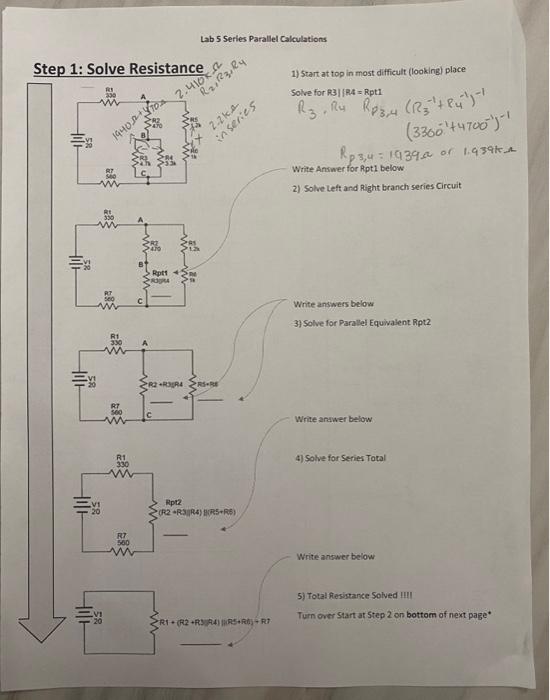 Lab 5 Series Parallel Calculations
Step 1: Solve Resistance
1940Ω + 470Ω
2.410KΩ
R2, R3, R4
2.2kΩ
in series
1) Start at top in most difficult (looking) place
Solve for R3||R4 = Rpt1
R3, R4 Rp3,4 (R3⁻¹+R4⁻¹)⁻¹
(3300⁻¹+4700⁻¹)⁻¹
Rp3,4 = 1939Ω or 1.939KΩ
R1
330
A
R2
470
R5
1.2k
B
V1
20
R3
4.7k
R4
3.3k
R6
1k
R7
560
C
Write Answer for Rpt1 below
2) Solve Left and Right branch series Circuit
R1
330
A
R2
470
R5
1.2k
V1
20
B
Rpt1
R3||R4
R6
1k
R7
560
C
Write answers below
3) Solve for Parallel Equivalent Rpt2
R1
330
A
V1
20
R2 +R3||R4
R5+R6
R7
560
C
Write answer below
4) Solve for Series Total
R1
330
V1
20
Rpt2
(R2 +R3||R4) ||(R5+R6)
R7
560
Write answer below
5) Total Resistance Solved !!!!
Turn over Start at Step 2 on bottom of next page*
V1
20
R1 + (R2 +R3||R4) ||(R5+R6) + R7